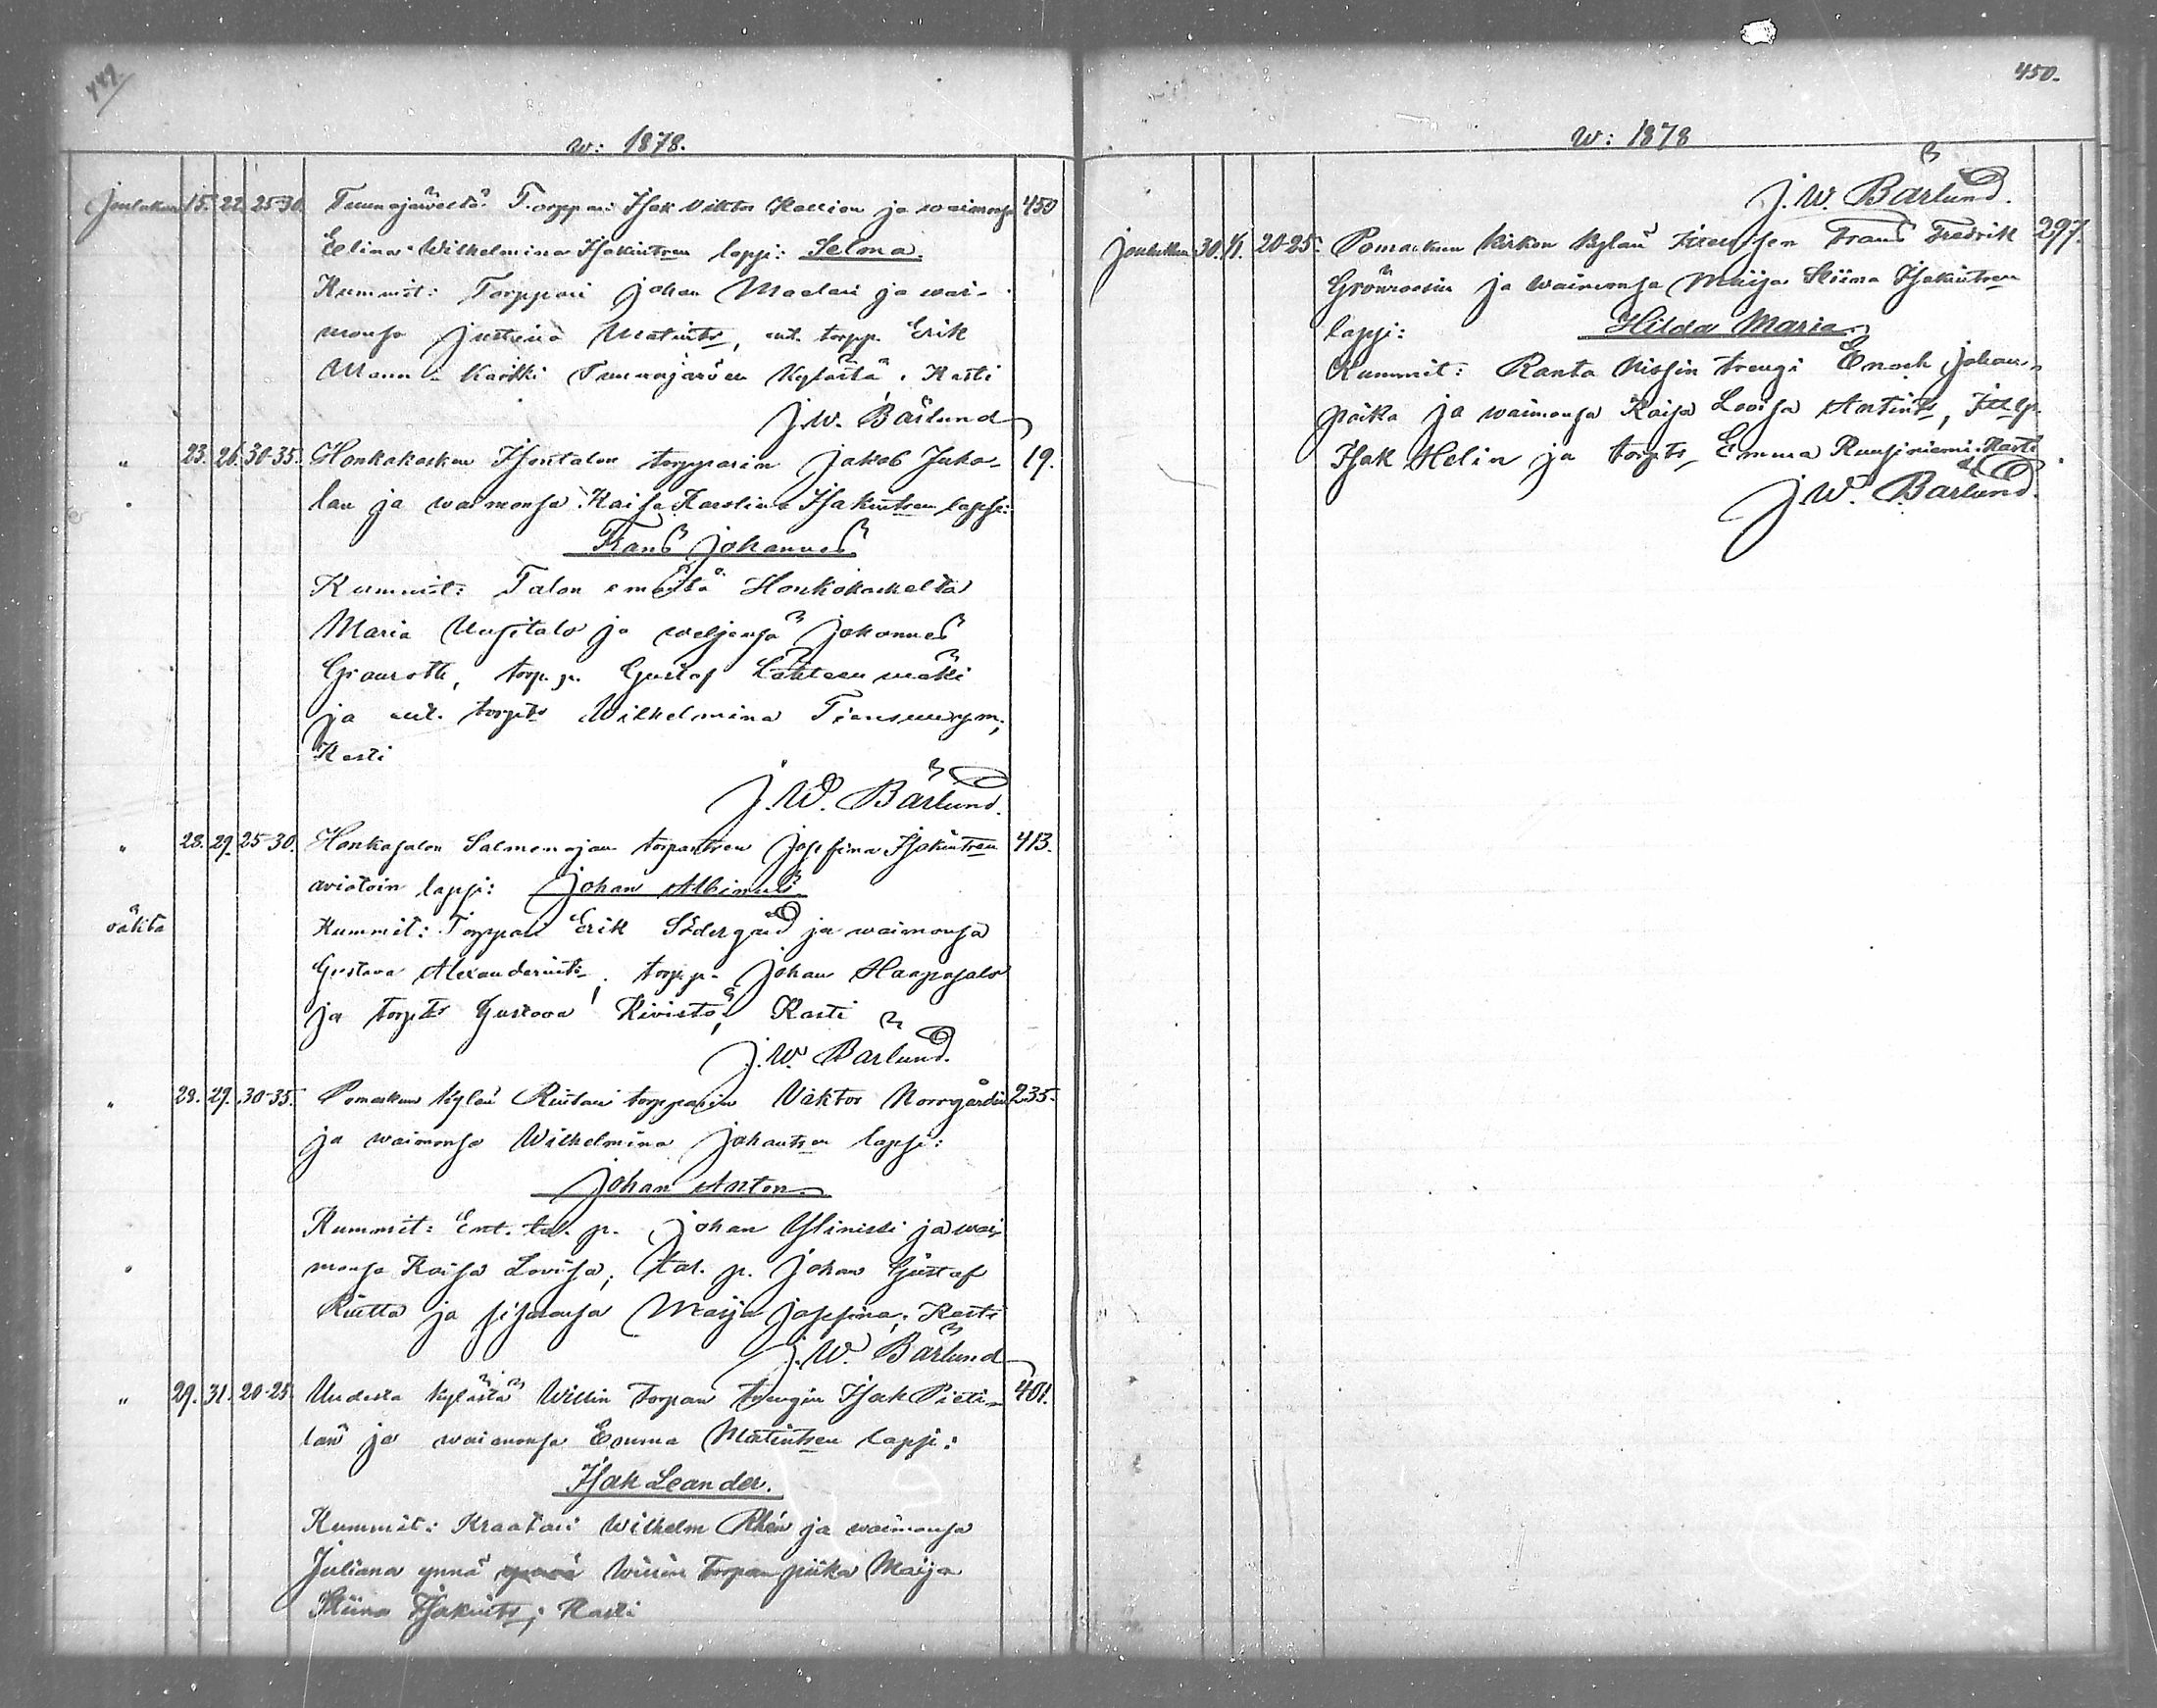 449.
w: 1878.
Joulukuu 15. 22. 25-30. Tuunajärveltä Torppari Isak Viktor Kallion ja waimonsa 450
Elina Wilhelmina Isakintren lapsi: Selma.
Kummit: Torppari Johan Maelari ja wai-
monsa Justina Matints, ent. torpp. Erik
Kärkki Tuunajärven Kylästä. Kasti
J.W. Bärlund
" 23. 26. 30-35. Honkakosken Isontalon torpparin Jakob Juho- 19.
lan ja waimonsa Kaisa Karolina Isakintren lapsi:
Frans Johannes
Kummit: Talon emäntä Honkokoskelta
Maria Uusitalo ja weljensä Johannes
Granroth, torp. p. Gustaf Lähteenmäki
ja ent. torpts Wilhelmina
Kasti
J.W. Bärlund.
" 28. 29. 25-30. Honkasalon Salmenojan torpantren Josefina Isakintren 413.
aviotoin lapsi: Johan Albinus
vähta
Kummit: Torppari Erik Södergård ja waimonsa
Gustava Alexanderints, torp.p. Johan Haapasalo
ja torpts Gustava Kivistö; Kasti
J.W. Bärlund.
" 28. 29. 30-35. Pomarkun kylän Riutan torpparin Viktor Norrgårdin 235.
ja waimonsa Wilhelmina Johantren lapsi:
Johan Anton.
Kummit: Ent. tal. p. Johan Ylinissi ja wai-
monsa Kaisa Lovisa, tal. p. Johan Gustaf
Riutta ja sisarensa Maija Josefina; Kasti
J.W. Bärlund
" 29. 31. 20-25. Uudesta kylästä Willin torpan trengin Isak Pieti- 401.
län ja waimonsa Emma Matintren lapsi:
Isak Leander.
Kummit: Kraatari Wilhelm Rhén ja waimonsa
Juliana ynnä Willin Torpan piika Maija
Stiina Isakints; Kasti
450.
w: 1878
J.W. Bärlund.
Joulukuu 30. 1/1. 20-25. Pomarkun Kirkon kylän Frans Fredrik 297.
Grönroosin ja waimonsa Maija Stiina Isakintren
lapsi: Hilda Maria.
Kummit: Ranta Nissin trengi Enoch Johan-
poika ja waimonsa Kaisa Lovisa Antints,
Isak Helin ja torpts Emma Ruusiniemi. Kasti
J.W. Bärlund.